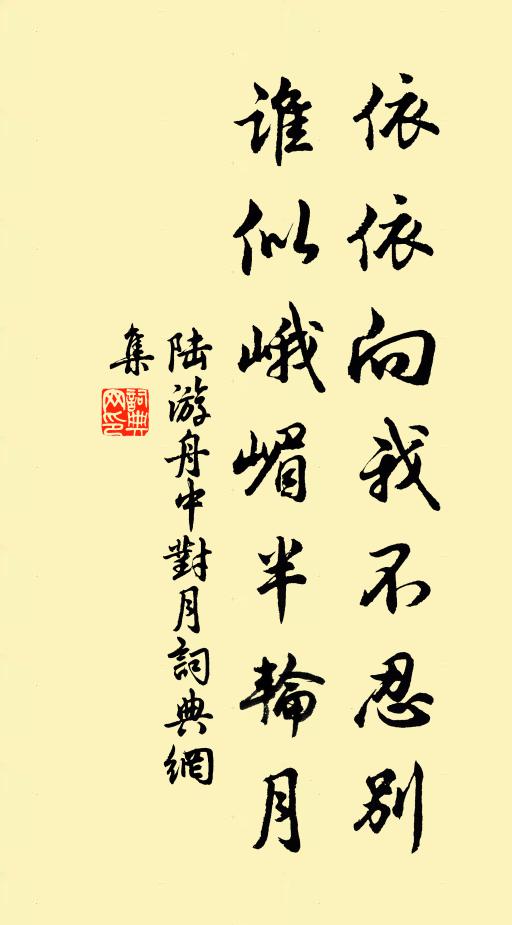 依依向我不忍別
誰似峨嵋半輪月
陆游舟中對月詞典網
集
詞典
网印